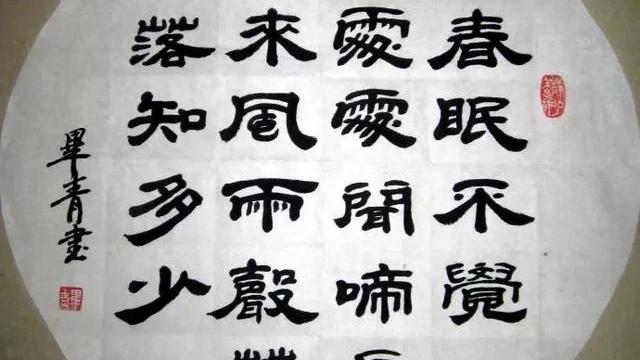 春眠不覺
處處聞啼
來風雨聲
落知多少
畢青書